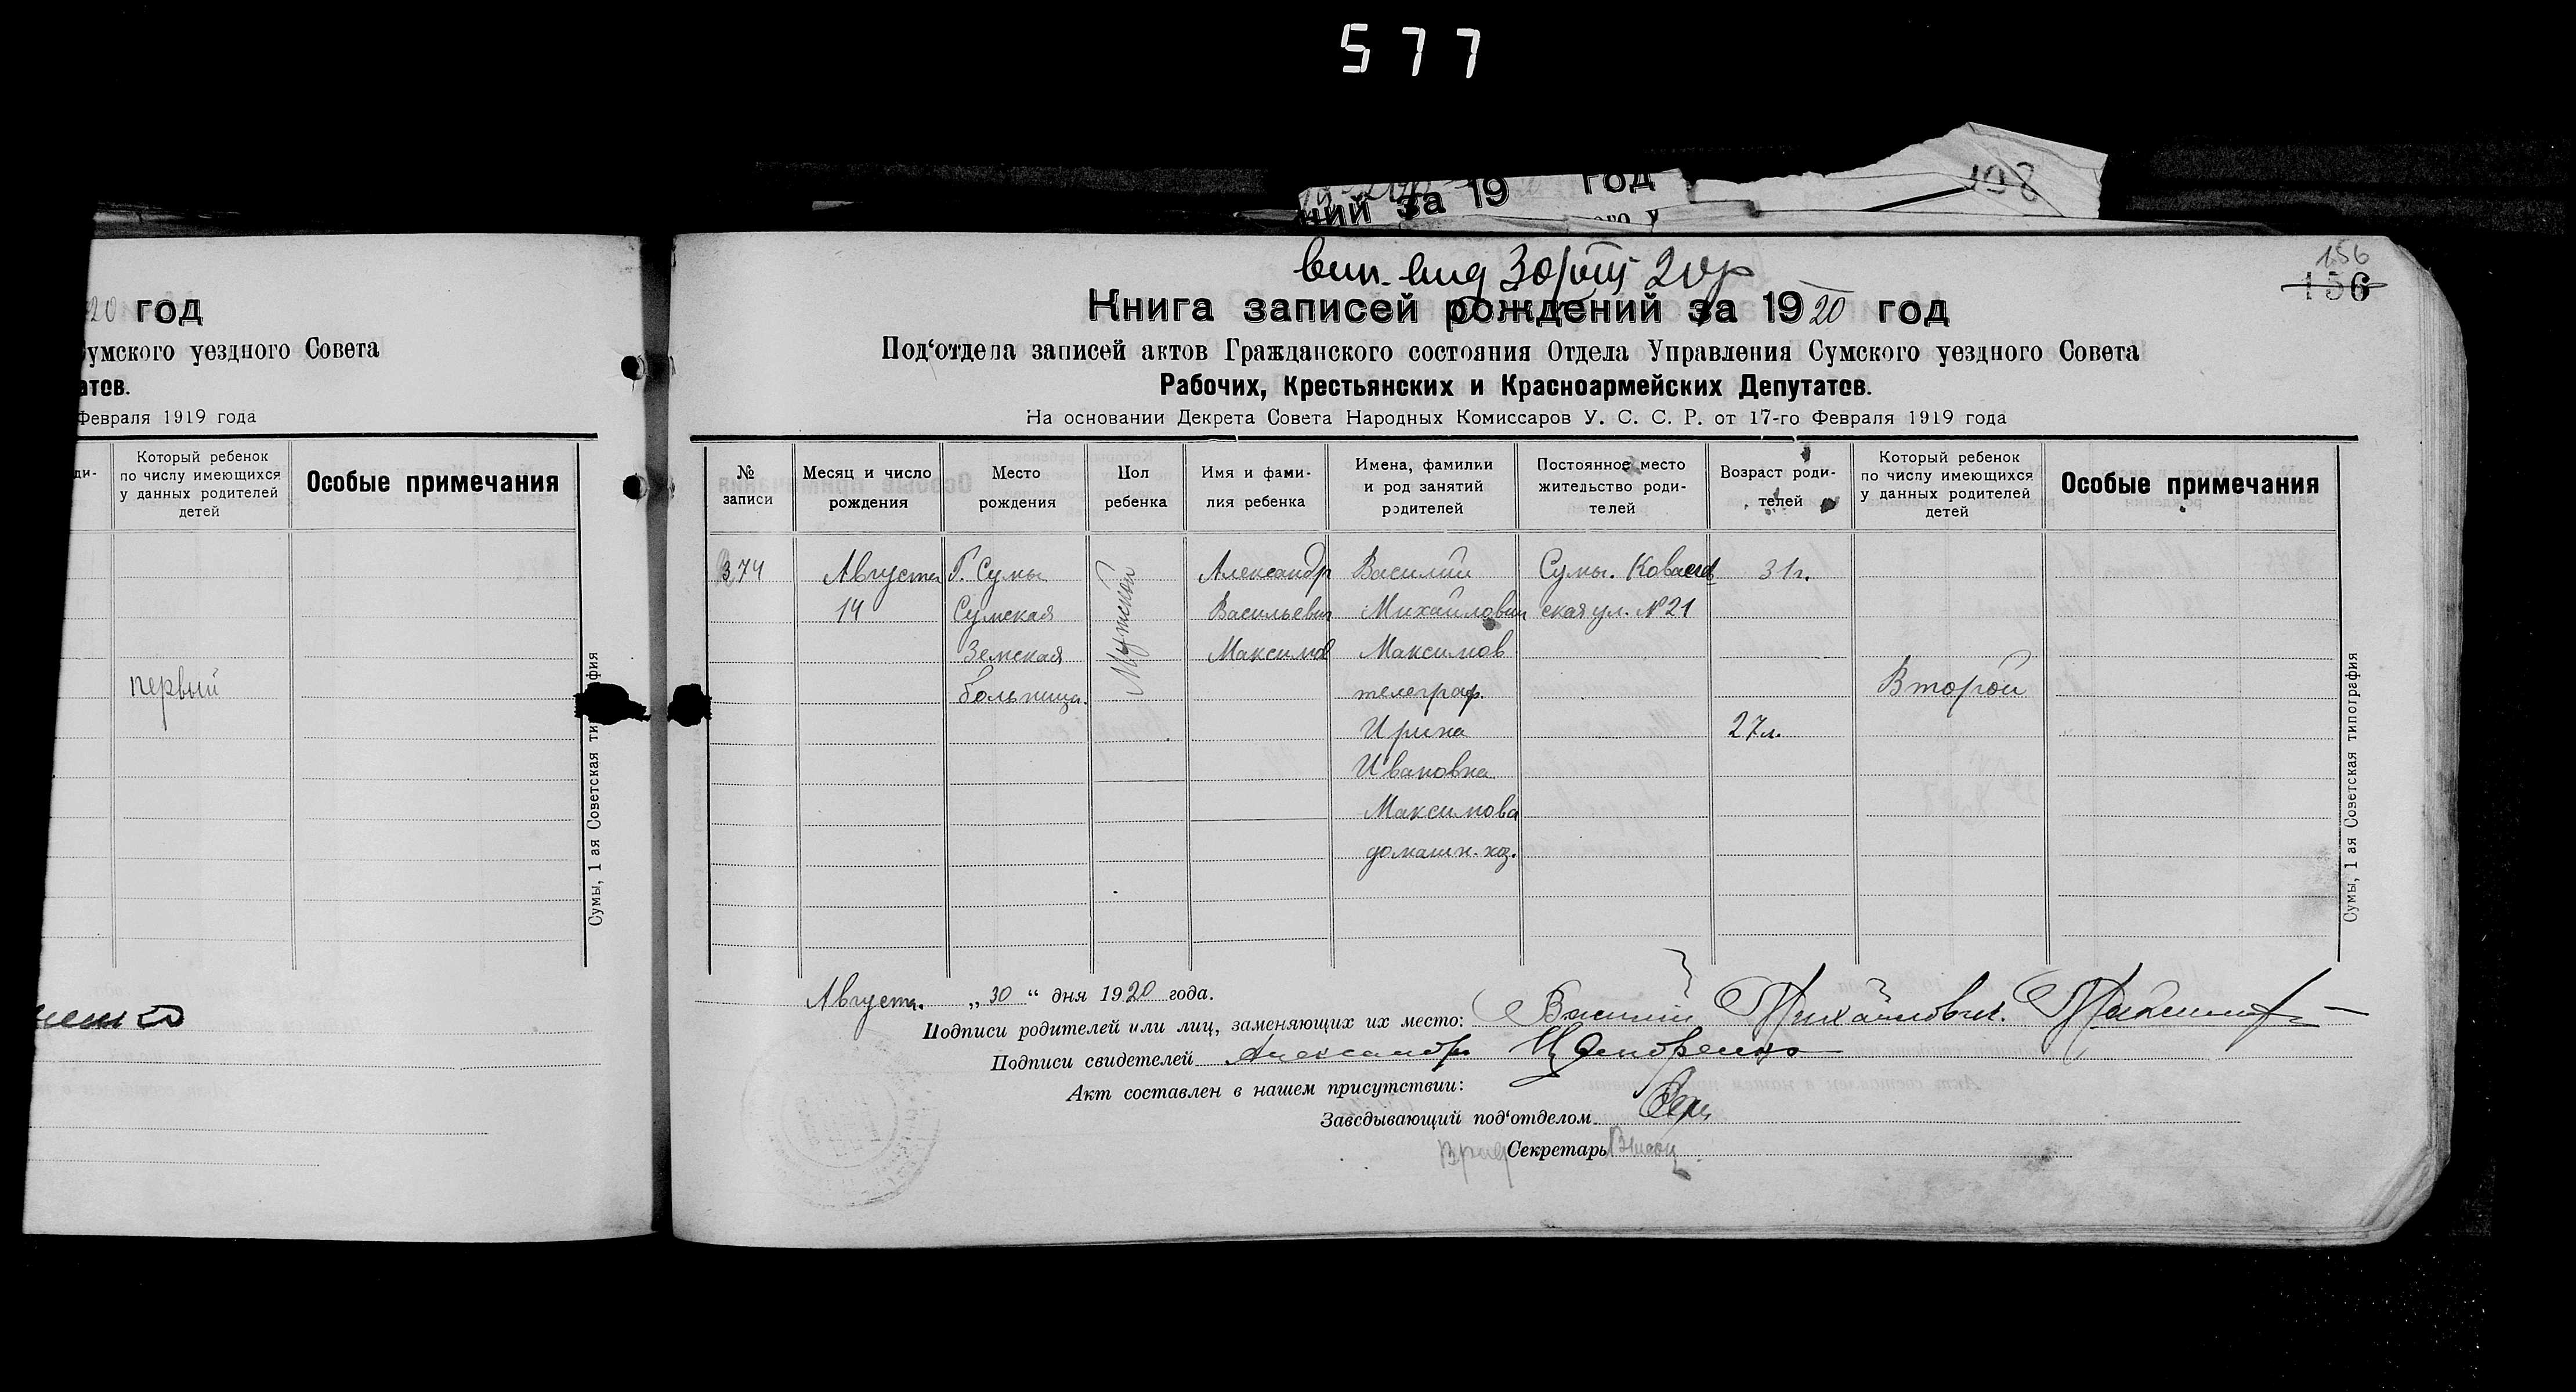 577
ний за 19 год
198
20 год
Сумского уездного Совета
атов.
Февраля 1919 года
ди-
Который ребенок
по числу имеющихся
у данных родителей
детей
Особые примечания
первый
Сумы, 1 ая Советская ти фия
вип. вид 30/VIII 20р
156
156
Книга записей рождений за 1920 год
Под‘отдела записей актов Гражданского состояния Отдела Управления Сумского уездного Совета
Рабочих, Крестьянских и Красноармейских Депутатов.
На основании Декрета Совета Народных Комиссаров У. С. С. Р. от 17-го Февраля 1919 года
№ записи
Месяц и число рождения
Место рождения
Пол ребенка
Имя и фами-
лия ребенка
Имена, фамилки
и род занятий
родителей
Постоянное место
жительство роди-
телей
Возраст роди-
телей
Который ребенок
по числу имеющихся
у данных родителей
детей
Особые примечания
374
Августа
14
Г. Сумы
Сумская
Земская
больница.
Мужской
Александр
Васильевич
Максимов
Василий
Михайлович
Максимов
телеграф.
Ирина
Ивановна
Максимова
домашн. хоз.
Сумы. Ковалев
ская ул. № 21
31г.
27л.
Второй
Сумы, 1 ая Советская типография
Августа. „30“ дня 1920 года.
Подписи родителей или лиц, заменяющих их место: Василий Михайлович Максимов
Подписи свидетелей Александр
Акт составлен в нашем присутствии:
Заведывающий под‘отделом
Секретарь